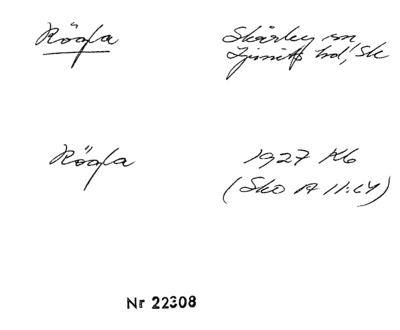 Röåfa Skärby sn
Ljunits hd, Sk
Röåfa 1927 Kb
(Sko A 11:24)
Nr 22308